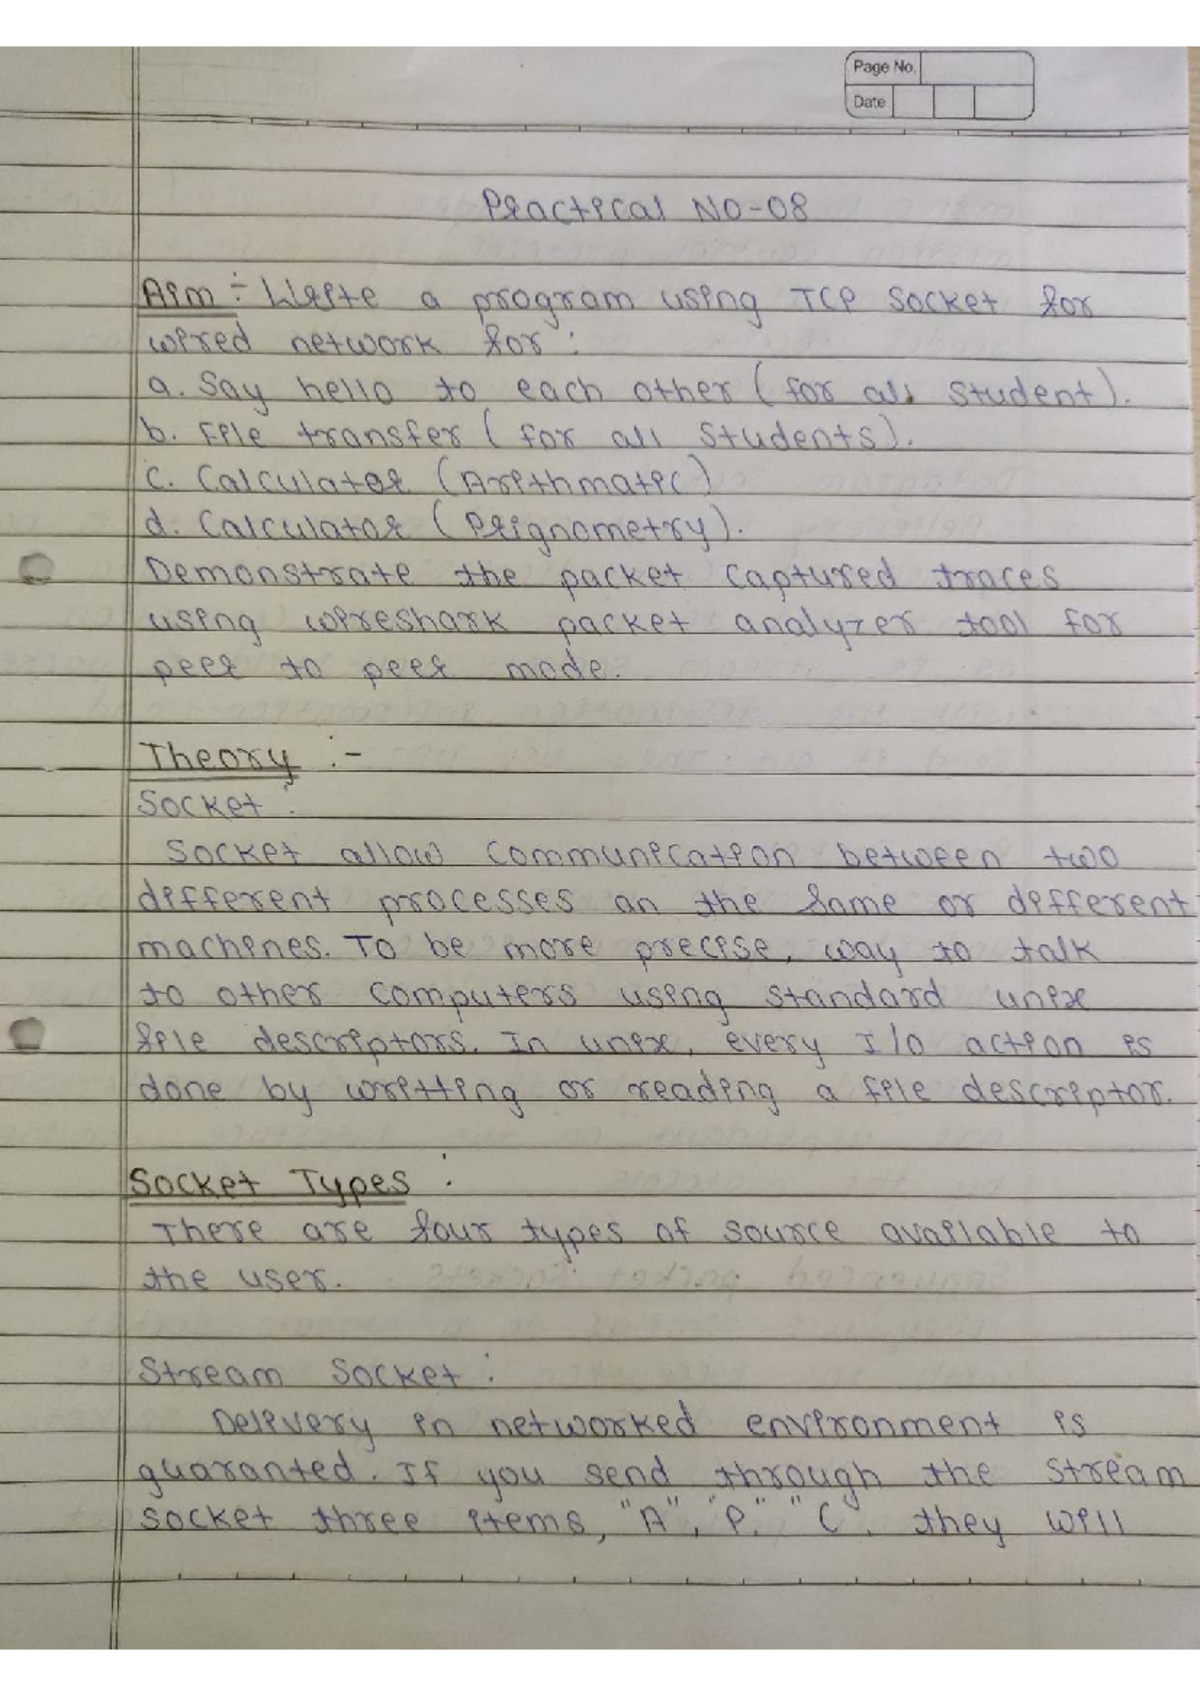 Page No.
Date
Practical No-08
Aim :- Write a program using TCP Socket for
wired network for :
a. Say hello to each other (for all Student).
b. File transfer (for all Students).
c. Calculator (Arithmatic)
d. Calculator (Prignometry).
Demonstrate the packet captured traces
using wireshark packet analyzer tool for
peer to peer mode.
Theory :-
Socket :
Socket allow communication between two
different processes an the same or different
machines. To be more precise, way to talk
to other computers using standard unix
file descriptors. In unix, every I/O action is
done by writting or reading a file descriptor.
Socket Types :
There are four types of source available to
the user.
Stream Socket :
Delivery in networked environment is
guaranted. If you send through the stream
socket three items, "A", "P." "C". they will